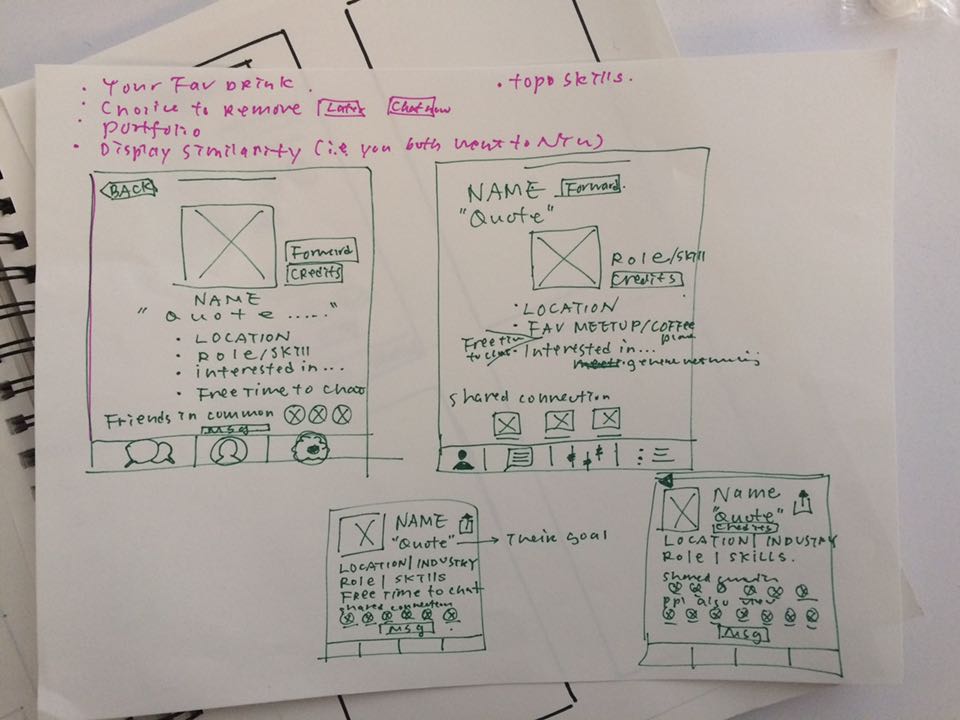 · Your Fav Drink.
· topp skills.
· Choice to remove Later Chat now
· Portfolio
· Display similarity (i.e you both went to NTU)
BACK
Forward
Credits
NAME
"Quote ....."
· LOCATION
· Role/Skill
· interested in...
· Free Time to chat
Friends in common
Msg
NAME Forward.
"Quote"
Role/Skill
Credits
· LOCATION
· FAV MEETUP/COFFEE
place
Free time
· Interested in...
shared connection
NAME
"Quote" → Their goal
LOCATION | INDUSTRY
Role | SKills
Free Time to chat
shared connection
Msg
Name
"Quote"
Credits
LOCATION | INDUSTRY
Role | SKills.
shared
ppl also view
Msg